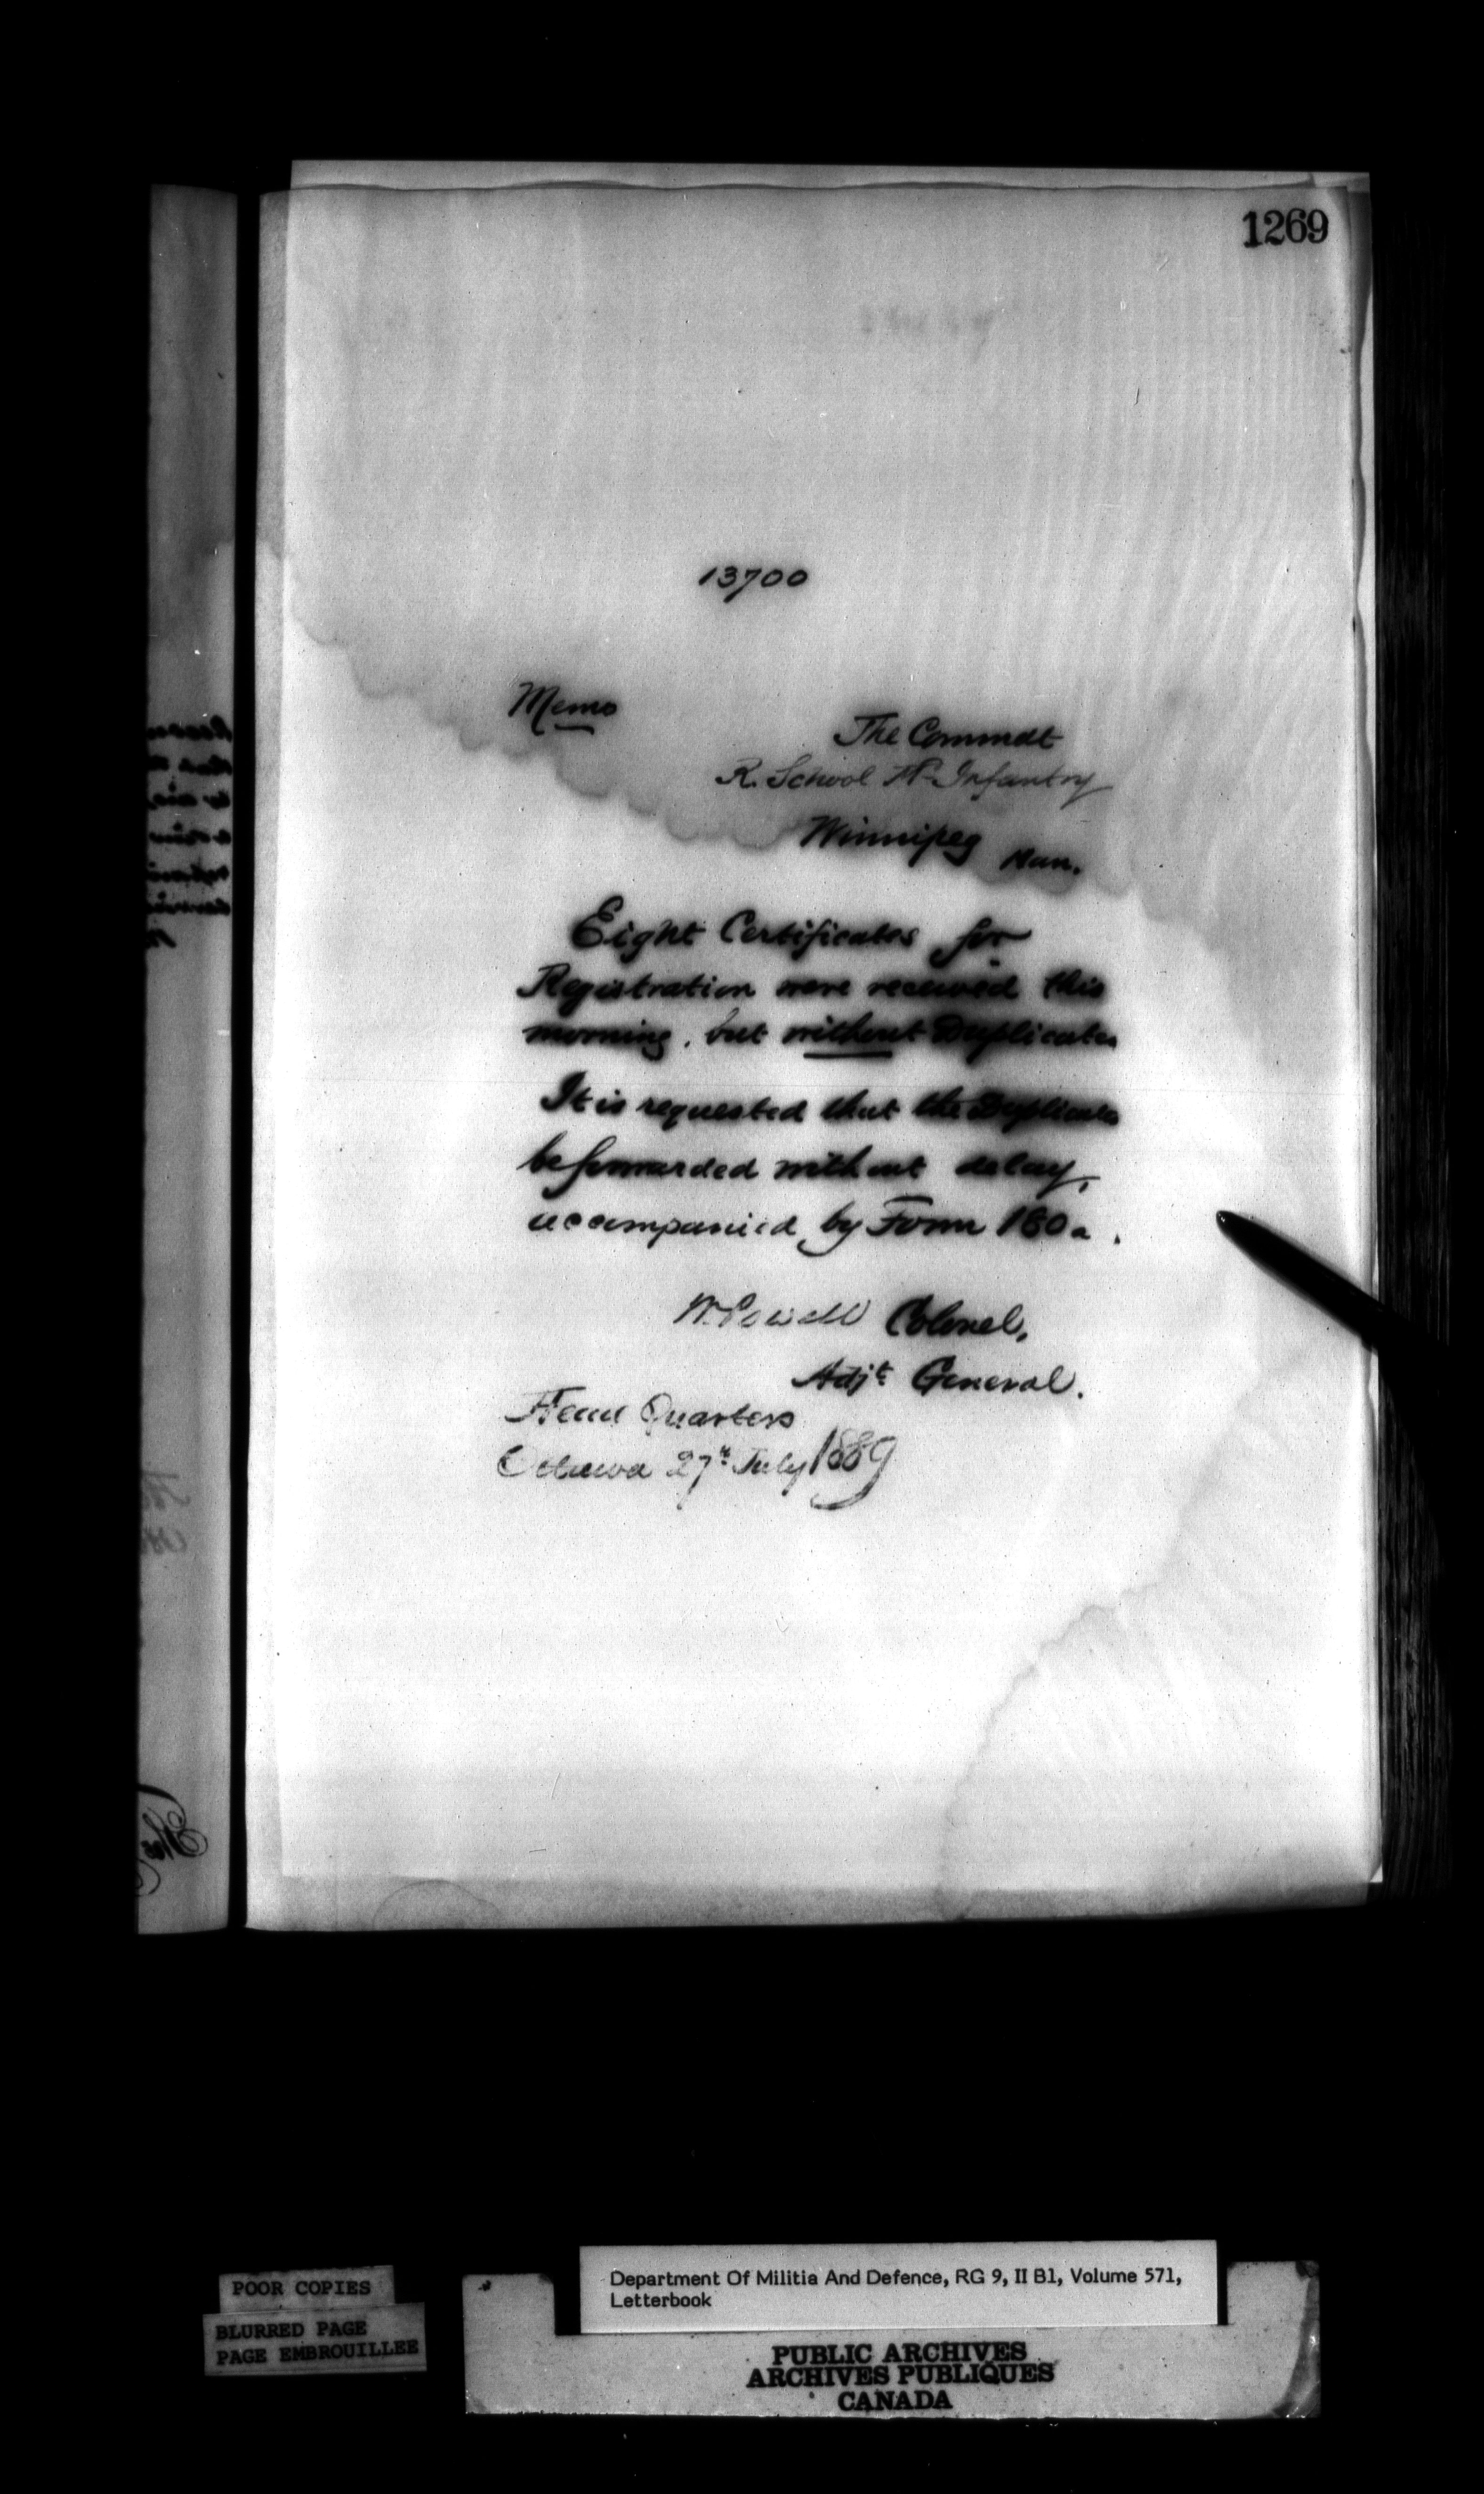 1269
13700
Memo
The Commdt
R. School Md Infantry
Winnipeg Man.
Eight Certificates for
Registration were received this
morning, but without Duplicates
It is requested that the Duplicates
be forwarded without delay,
accompanied by Form 180a.
W. Powell Colonel,
Adjt General.
Head Quarters
Ottawa 27th July 1889
POOR COPIES
BLURRED PAGE
PAGE EMBROUILLEE
Department Of Militia And Defence, RG 9, II B1, Volume 571,
Letterbook
PUBLIC ARCHIVES
ARCHIVES PUBLIQUES
CANADA